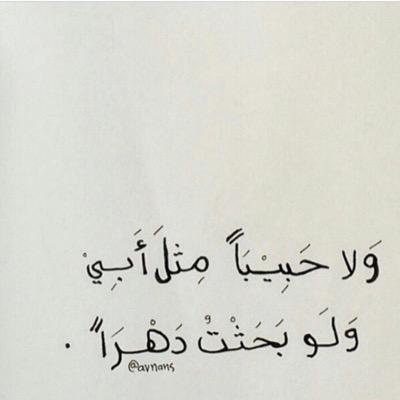 وَلا حَبِيْبَاً مِثْلَ أَبِيْ
وَلَو بَحَثْتُ دَهْرَاً .
@avnans